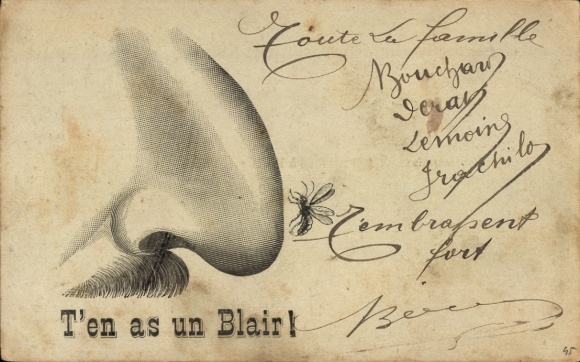 Toute La famille
Bouchar
Derat
Lemoine
T'embrassent
fort
T'en as un Blair!
45